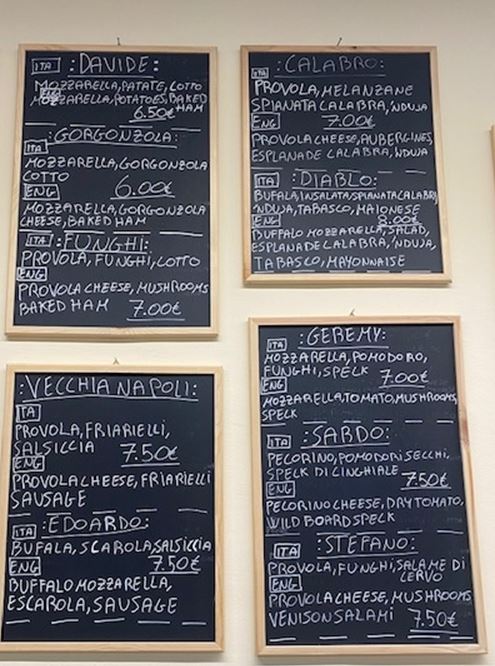 ITA :DAVIDE:
MOZZARELLA, PATATE, COTTO
ENG
MOZZARELLA, POTATOES, BAKED
HAM
6.50€
:GORGONZOLA:
ITA
MOZZARELLA, GORGONZOLA
COTTO
ENG 6.00€
MOZZARELLA, GORGONZOLA
CHEESE, BAKED HAM
ITA :FUNGHI:
PROVOLA, FUNGHI, COTTO
ENG
PROVOLA CHEESE, MUSHROOMS
BAKED HAM 7.00€
:CALABRO:
ITA
PROVOLA, MELANZANE
SPIANATA CALABRA, 'NDUJA
ENG 7.00€
PROVOLA CHEESE, AUBERGINES,
ESPLANADE CALABRA, 'NDUJA
ITA :DIABLO:
BUFALA, INSALATA, SPIANATA CALABRA
'NDUJA, TABASCO, MAIONESE
ENG 8.00€
BUFFALO MOZZARELLA, SALAD,
ESPLANADE CALABRA, 'NDUJA,
TABASCO, MAYONNAISE
:VECCHIA NAPOLI:
ITA
PROVOLA, FRIARIELLI,
SALSICCIA 7.50€
ENG
PROVOLA CHEESE, FRIARIELLI
SAUSAGE
ITA :EDOARDO:
BUFALA, SCAROLA, SALSICCIA
ENG 7.50€
BUFFALO MOZZARELLA,
ESCAROLA, SAUSAGE
ITA :GEREMY:
MOZZARELLA, POMODORO,
FUNGHI, SPECK 7.00€
ENG
MOZZARELLA, TOMATO, MUSHROOMS,
SPECK
ITA :SARDO:
PECORINO, POMODORI SECCHI,
SPECK DI CINGHIALE 7.50€
ENG
PECORINO CHEESE, DRY TOMATO,
WILD BOARD SPECK
ITA :STEFANO:
PROVOLA, FUNGHI, SALAME DI
CERVO
ENG
PROVOLA CHEESE, MUSHROOMS
VENISON SALAMI 7.50€